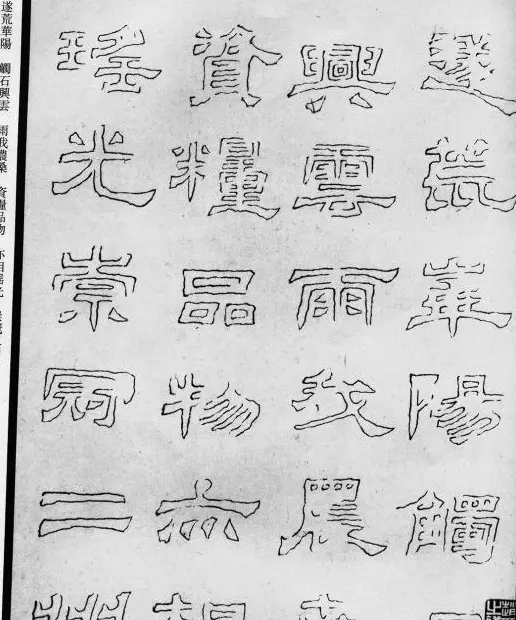 遂荒華陽觸
興雲雨我農桑
資糧品物亦相
瑤光崇冠二州
遂荒華陽 觸石興雲 雨我農桑 資糧品物 亦相瑤光